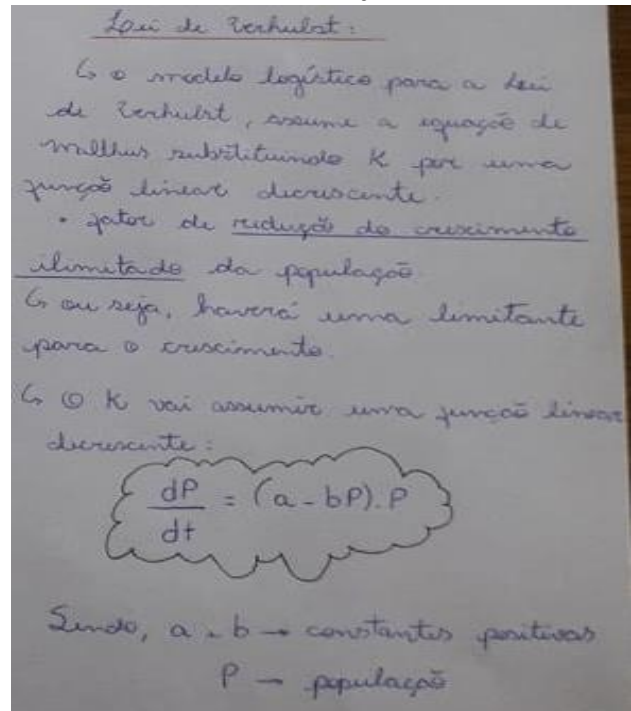 Lei de Verhulst:
↳ o modelo logístico para a Lei
de Verhulst, assume a equação de
Malthus substituindo K por uma
função linear decrescente.
• fator de redução do crescimento
ilimitado da população
↳ ou seja, haverá uma limitante
para o crescimento.
↳ O K vai assumir uma função linear
decrescente:
dP/dt = (a - bP).P
Sendo, a e b → constantes positivas
P → população